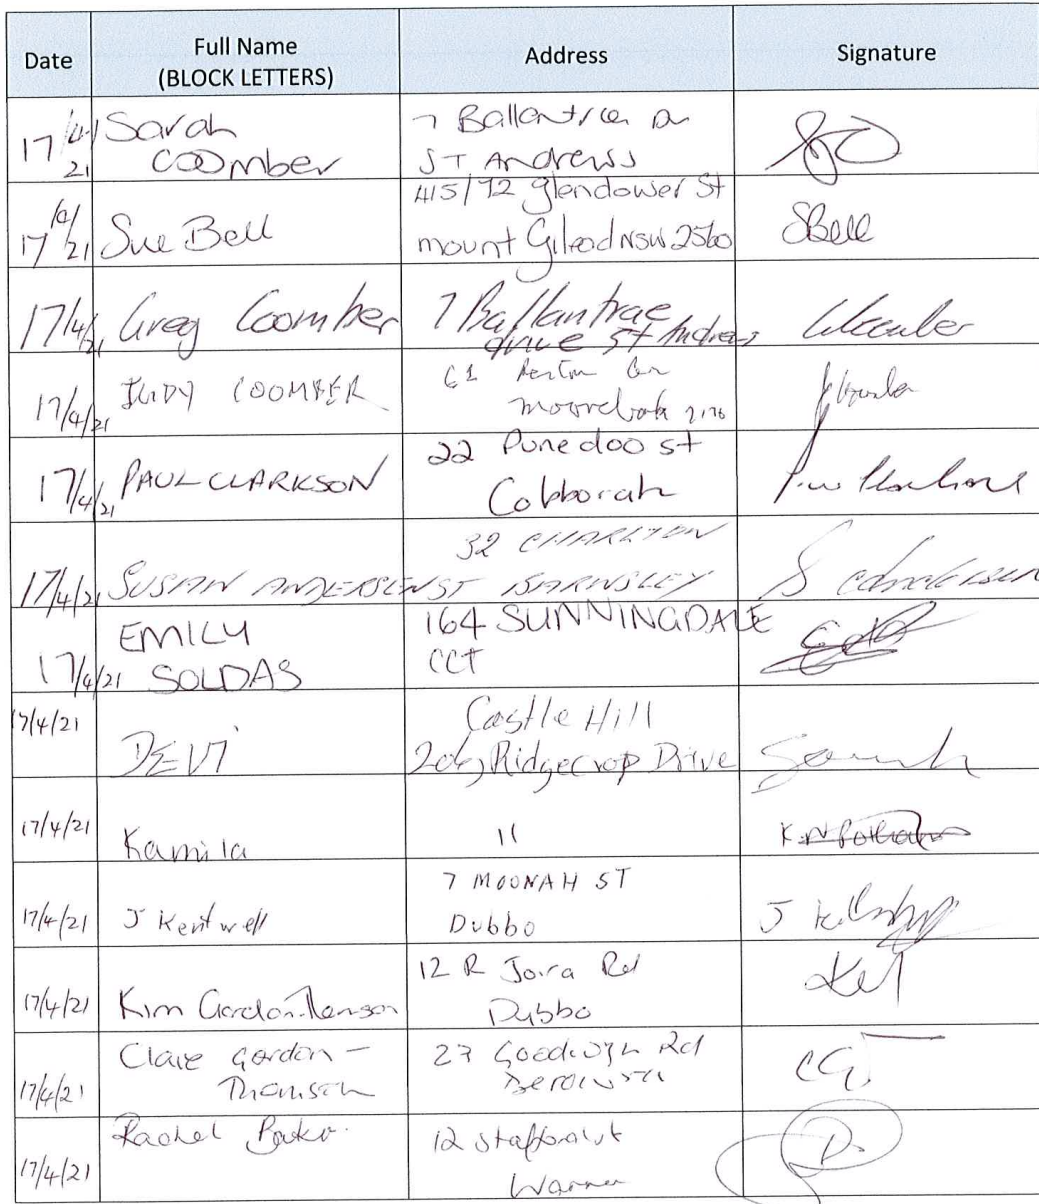 Date
Full Name
(BLOCK LETTERS)
Address
Signature
17/4/21
Sarah
Coomber
7 Ballantrae Dr
ST Andrews
17/4/21
Sue Bell
415/72 Glendower St
mount Gilead NSW 2560
SBell
17/4/21
Greg Coomber
7 Ballantrae
drive St Andrews
17/4/21
JUDY COOMBER
61
moorebank 2170
17/4/21
PAUL CLARKSON
22 Dunedoo st
Cobborah
17/4/21
SUSAN ANDERSEN
32 CHARLTON
ST BARNSLEY
17/4/21
EMILY
SOLDAS
164 SUNNINGDALE
CCT
17/4/21
DEVI
Castle Hill
206, Ridgecrop Drive
17/4/21
Kamila
11
17/4/21
J Kentwell
7 MOONAH ST
Dubbo
17/4/21
Kim Gordon-
12 R Joira Rd
Dubbo
17/4/21
Clare Gordon -
Thomson
27 Goodwyn Rd
Berowra
CG
17/4/21
Rachel
12